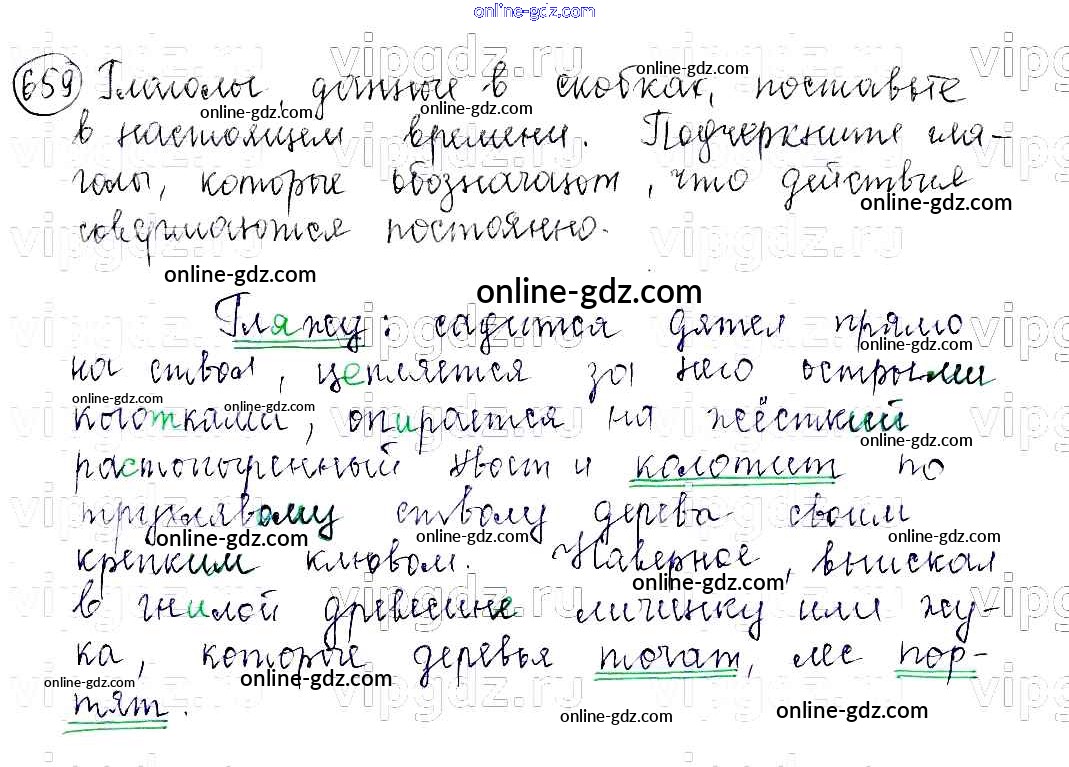 online-gdz.com
659 Глаголы, данные в скобках, поставьте
в настоящем времени. Подчеркните гла-
голы, которые обозначают, что действия
совершаются постоянно.
Гляжу: садится дятел прямо
на ствол, цепляется за него острыми
коготками, опирается на жёсткий
растопыренный хвост и колотит по
трухлявому стволу дерева своим
крепким клювом. Наверное, выискал
в гнилой древесине личинку или жу-
ка, которые деревья точат, лес пор-
тят.